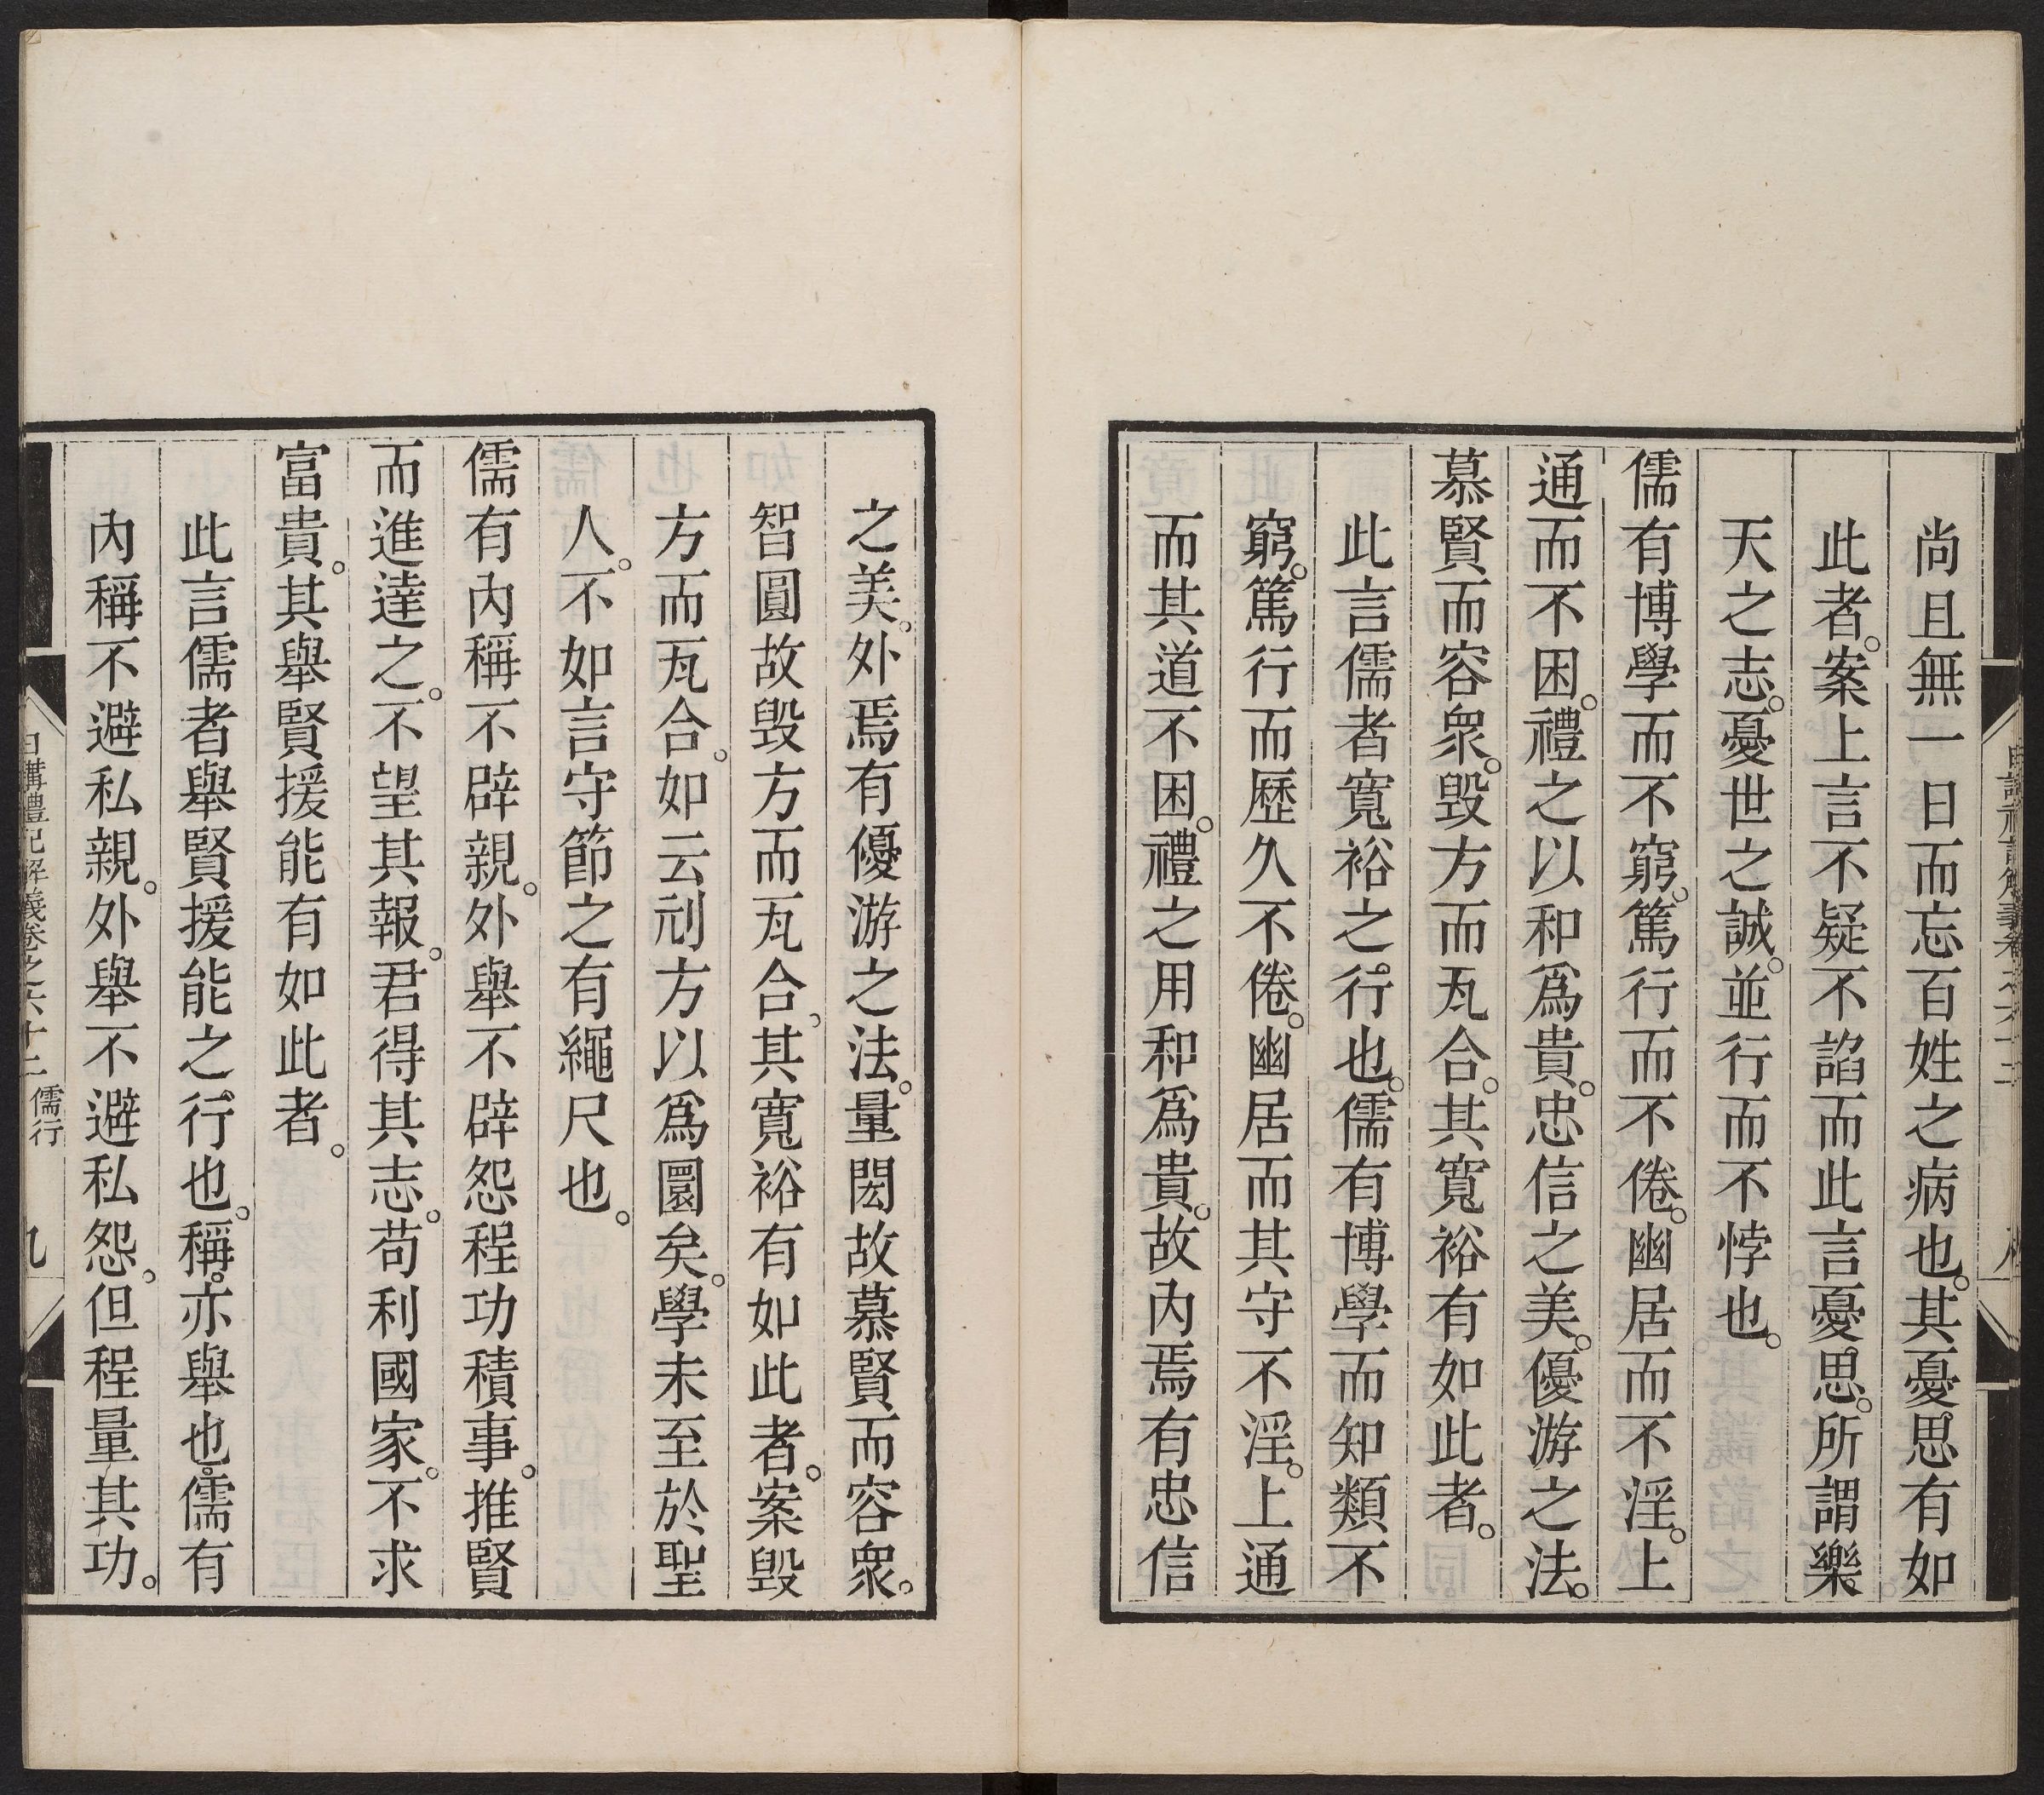 尚且無一日而忘百姓之病也。其憂思有如
此者。案上言不疑不諂而此言憂思。所謂樂
天之志。憂世之誠。並行而不悖也。
儒有博學而不窮。篤行而不倦。幽居而不淫。上
通而不困。禮之以和爲貴。忠信之美。優游之法。
慕賢而容衆。毀方而瓦合。其寬裕有如此者。
此言儒者寬裕之行也。儒有博學而知類不
窮。篤行而歷久不倦。幽居而其守不淫。上通
而其道不困。禮之用和爲貴。故內焉有忠信
之美。外焉有優游之法。量閎故慕賢而容衆。
智圓故毀方而瓦合。其寬裕有如此者。案毀
方而瓦合。如云刓方以爲圜矣。學未至於聖
人。不如言守節之有繩尺也。
儒有內稱不辟親。外舉不辟怨程功積事。推賢
而進達之。不望其報。君得其志。苟利國家。不求
富貴。其舉賢援能有如此者。
此言儒者舉賢援能之行也。稱。亦舉也。儒有
內稱不避私親。外舉不避私怨。但程量其功。
日講禮記解義卷之六十二 儒行 九